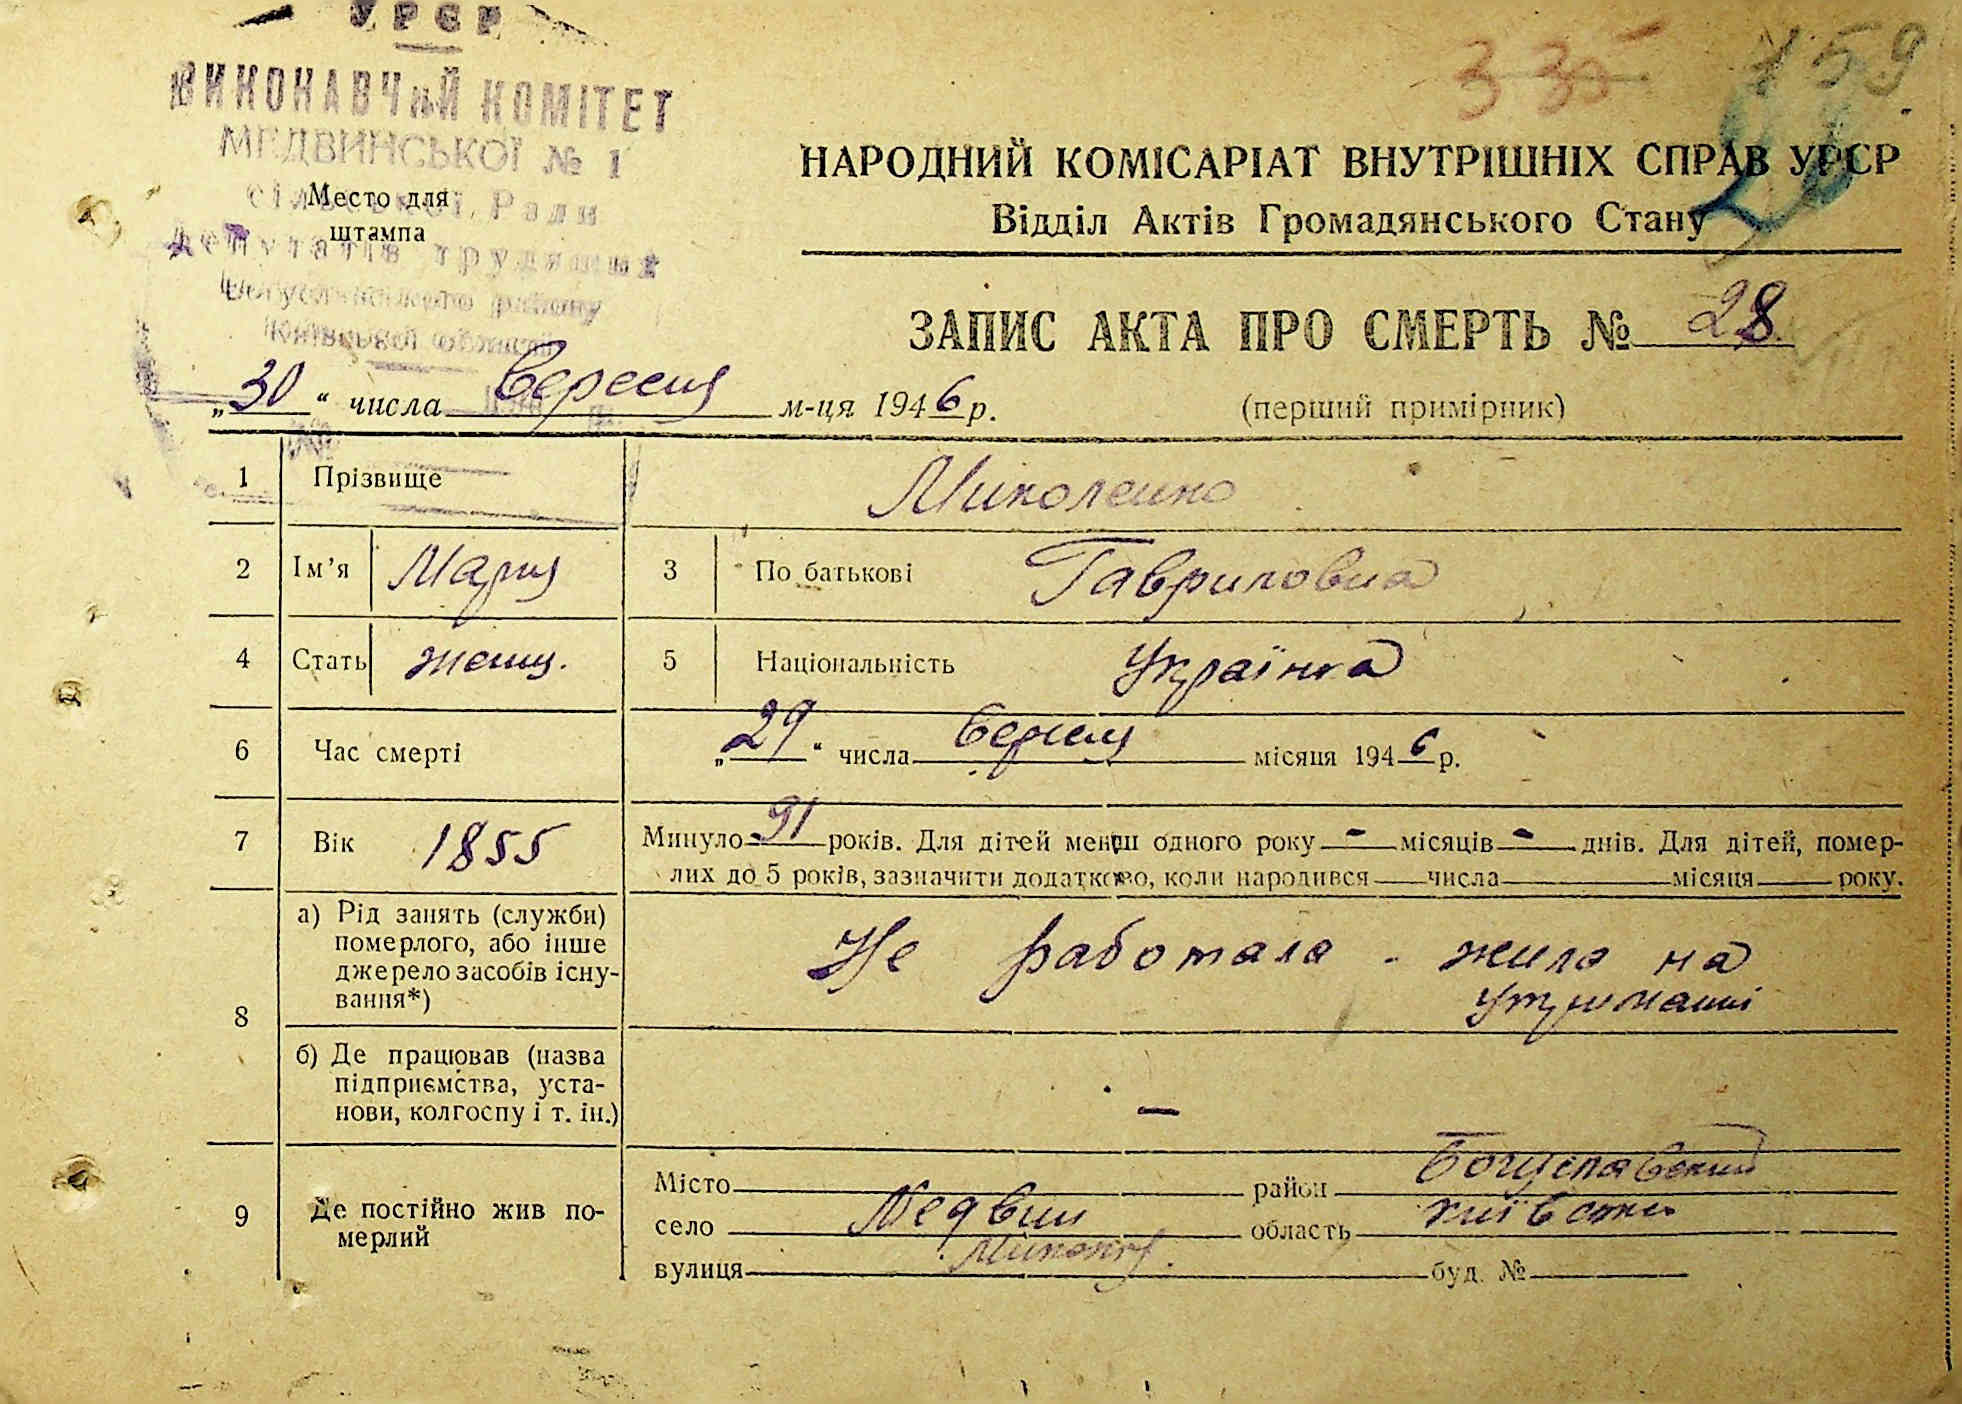 УРСР
ВИКОНАВЧИЙ КОМІТЕТ
МЕДВИНСЬКОЇ № 1
сільської Ради
Депутатів трудящих
Богуславського району
Київської області
Место для
штампа
335
159
НАРОДНИЙ КОМІСАРІАТ ВНУТРІШНІХ СПРАВ УРСР
Відділ Актів Громадянського Стану
ЗАПИС АКТА ПРО СМЕРТЬ № 28
„30“ числа Вересня м-ця 1946 р.
(перший примірник)
1 Прізвище Миколенко
2 Ім’я Мария 3 По батькові Гавриловна
4 Стать женщ. 5 Національність Українка
6 Час смерті „29“ числа Вересня місяця 1946 р.
7 Вік 1855 Минуло 91 років. Для дітей менш одного року - місяців - днів. Для дітей, помер-
лих до 5 років, зазначити додатково, коли народився числа місяця року.
8 а) Рід занять (служби)
померлого, або інше
джерело засобів існу-
вання*)
Не работала - жила на
утриманні
б) Де працював (назва
підприємства, уста-
нови, колгоспу і т. ін.)
—
9 Де постійно жив по-
мерлий
Місто район Богуславский
село Медвин область Київська
вулиця буд. №